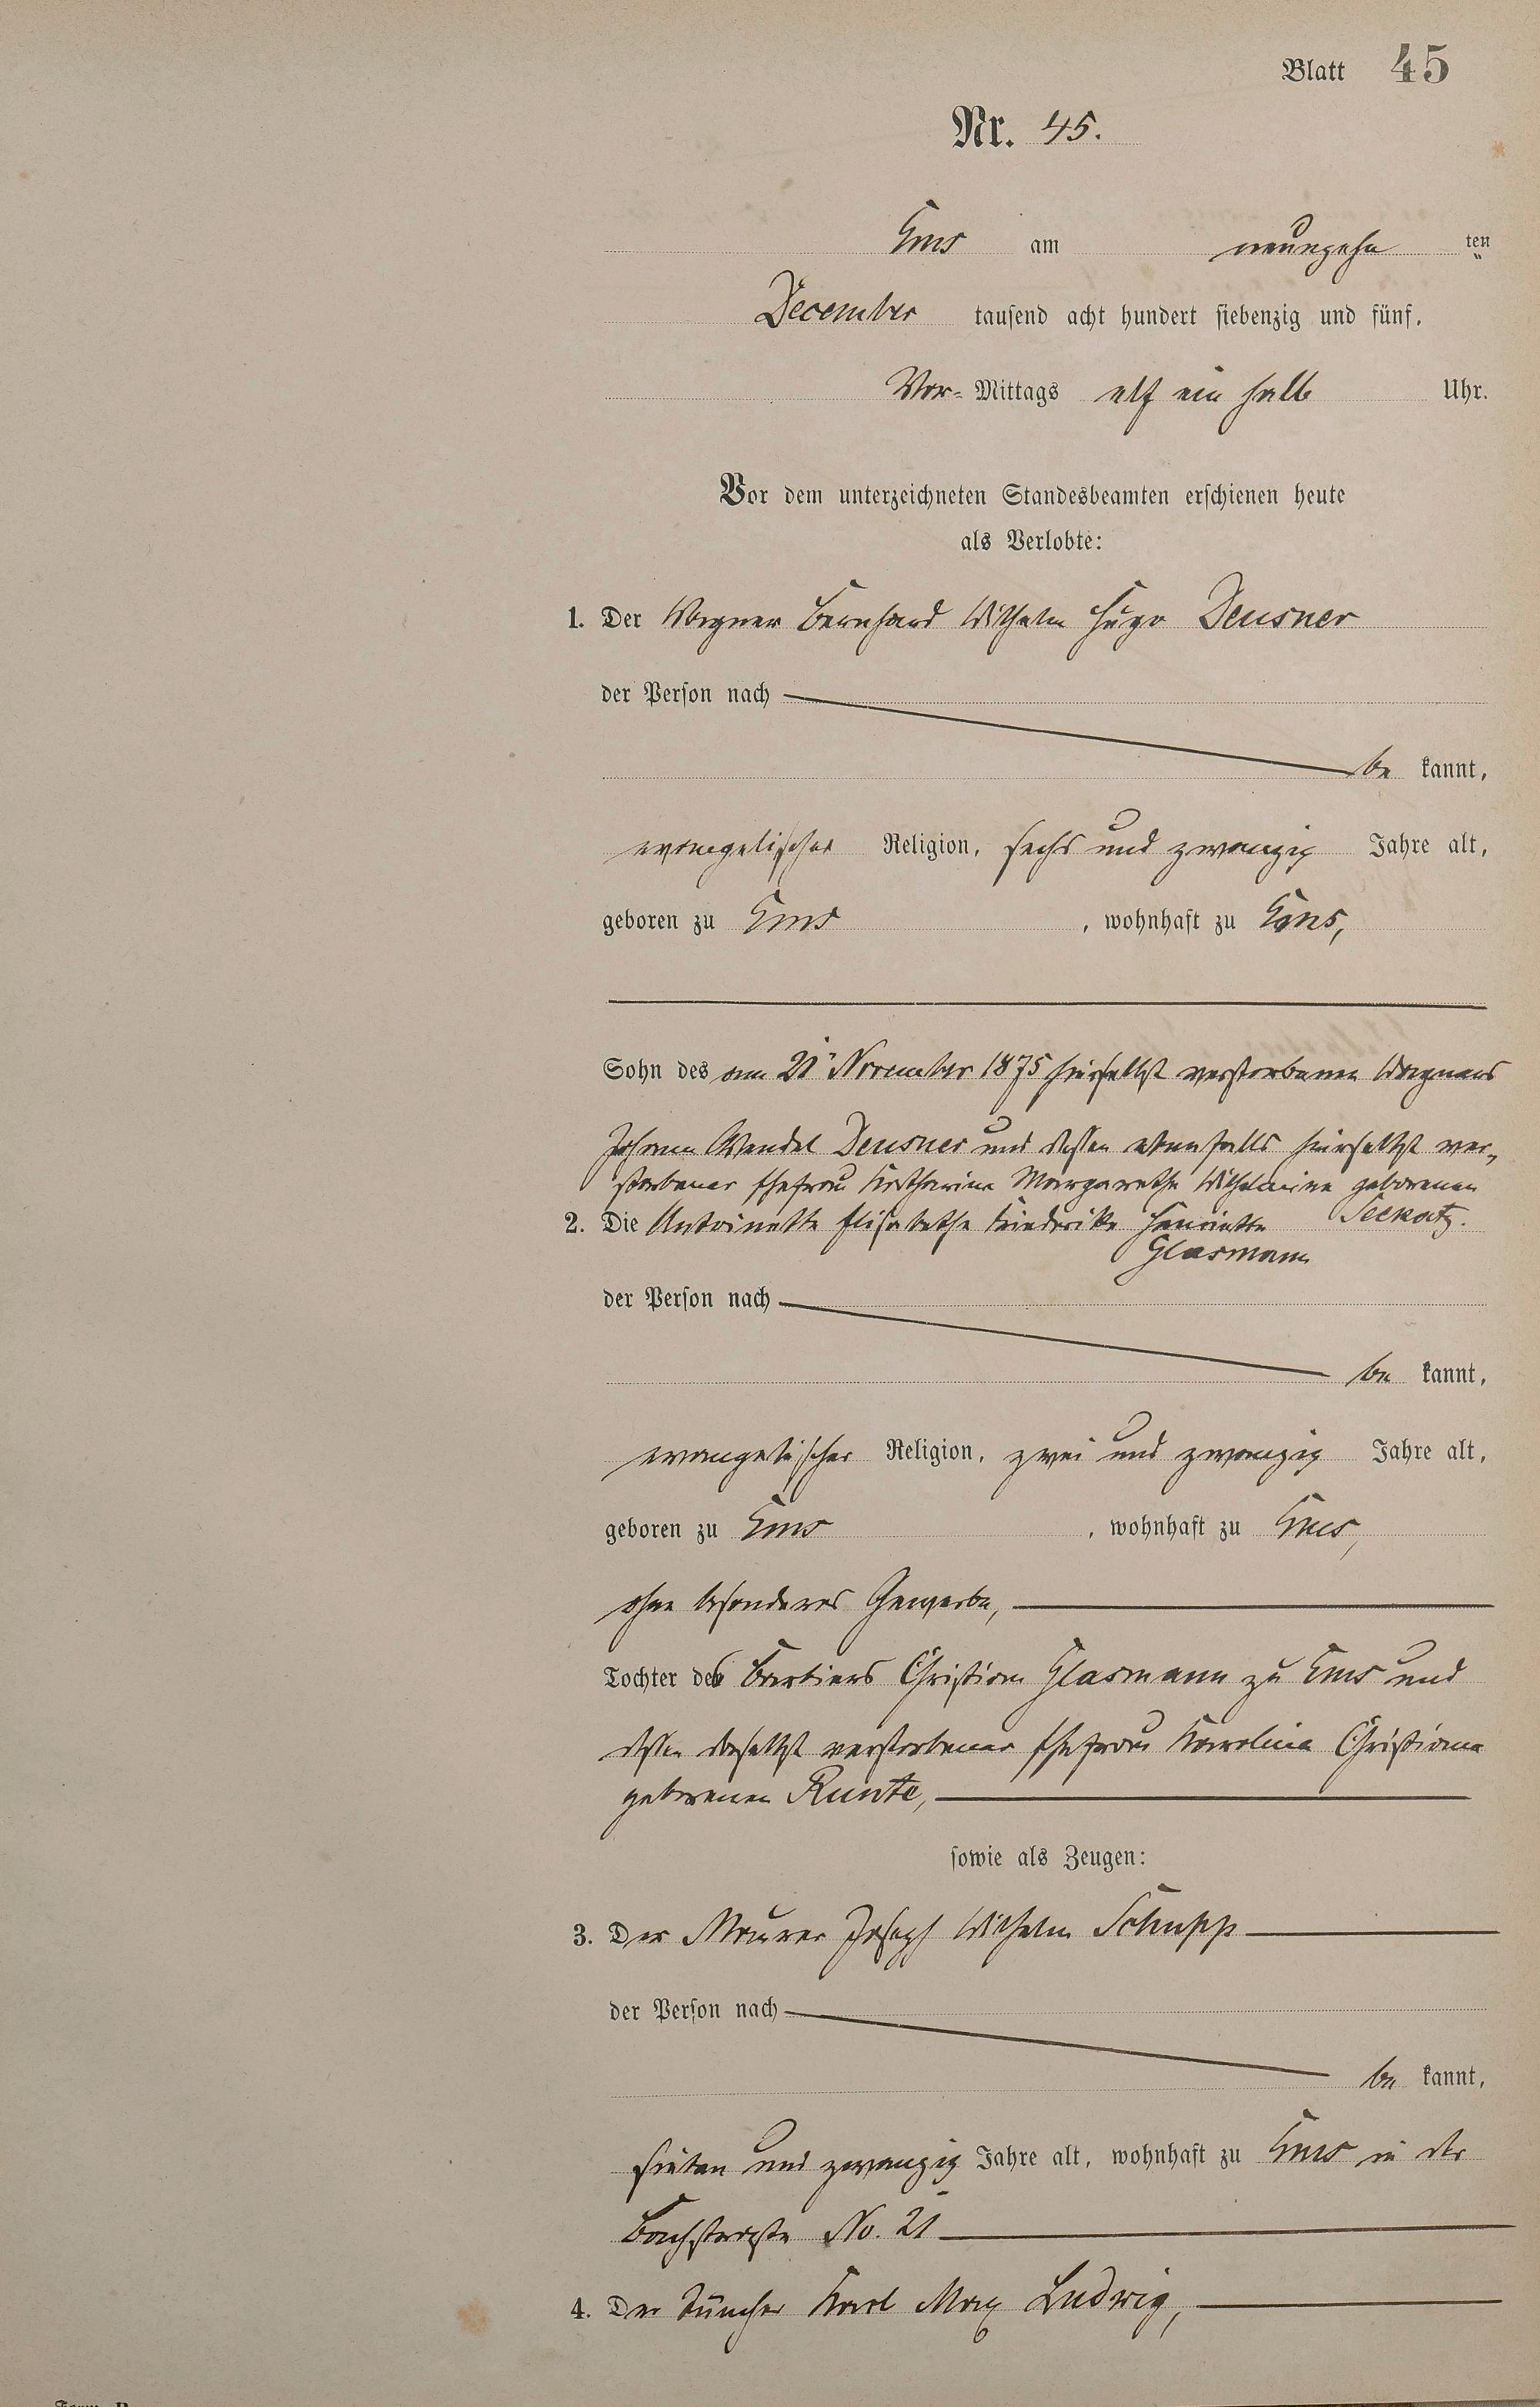 Blatt 45
Nr. 45.
Ems am neunzehn ten
December tausend acht hundert siebenzig und fünf,
Vor- Mittags elf ein halb Uhr.
Vor dem unterzeichneten Standesbeamten erschienen heute
als Verlobte:
1. Der Wagner Bernhard Wilhelm Hugo Deusner
der Person nach
be kannt,
evangelischer Religion, sechs und zwanzig Jahre alt,
geboren zu Ems , wohnhaft zu Ems,
Sohn des am 21 November 1875 hierselbst verstorbenen Wagners
Johann Wendel Deusner und dessen ebenfalls hierselbst ver-
storbener Ehefrau Katharine Margarethe Wilhelmine geborenen
Seekatz.
2. Die Antoinette Elisabethe Friederike Henriette
Glasmann
der Person nach
be kannt,
evangelischer Religion, zwei und zwanzig Jahre alt,
geboren zu Ems , wohnhaft zu Ems,
ohne besonderes Gewerbe,
Tochter des Barbiers Christian Glasmann zu Ems und
dessen daselbst verstorbener Ehefrau Karoline Christiane
geborenen Runte,
sowie als Zeugen:
3. Der Maurer Joseph Wilhelm Schupp
der Person nach
be kannt,
sieben und zwanzig Jahre alt, wohnhaft zu Ems in der
Bachstraße No. 21
4. Der Tüncher Karl Max Ludwig,